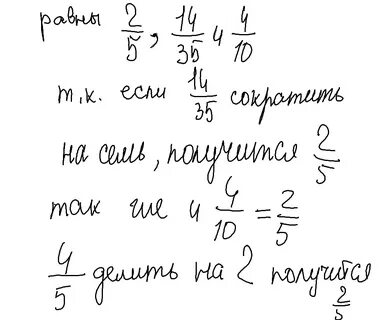 равны 2/5, 14/35 и 4/10
т.к. если 14/35 сократить
на семь, получится 2/5
так же и 4/10 = 2/5
4/5 делить на 2 получится 2/5